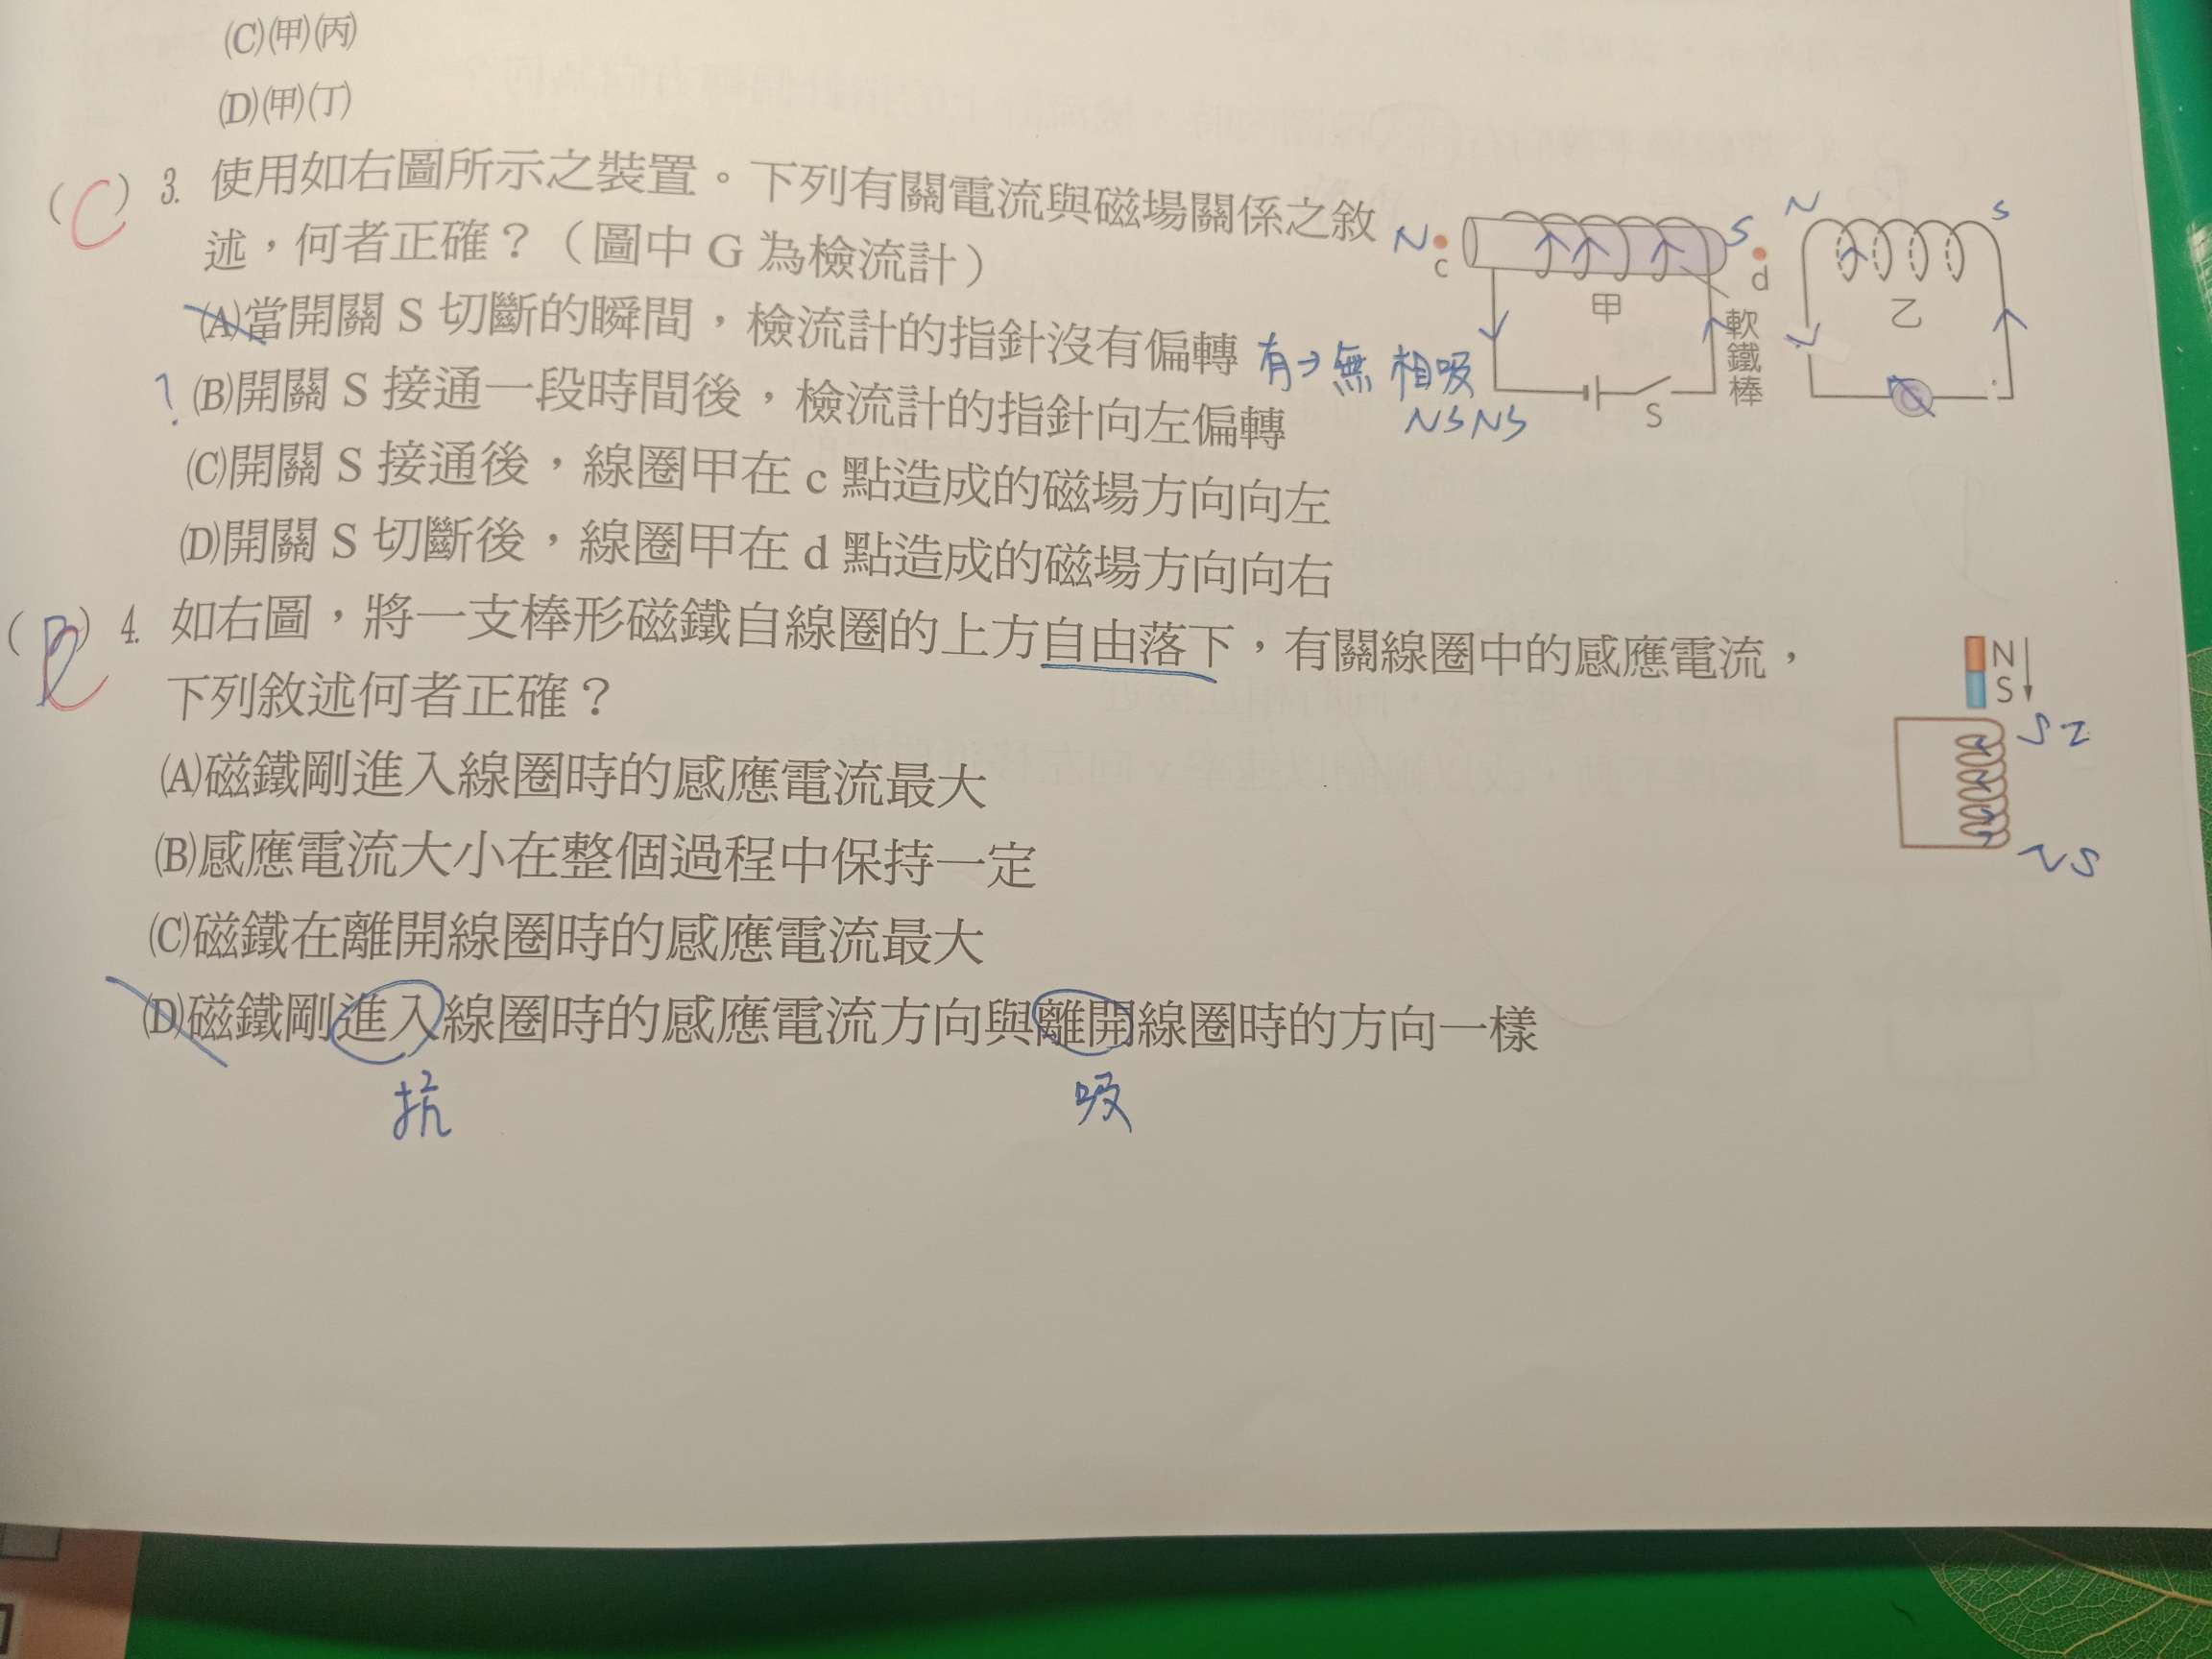 (C)(甲)(丙)
(D)(甲)(丁)
(C) 3. 使用如右圖所示之裝置。下列有關電流與磁場關係之敘
述，何者正確？（圖中 G 為檢流計）
(A)當開關 S 切斷的瞬間，檢流計的指針沒有偏轉
有→無 相吸
NSNS
? (B)開關 S 接通一段時間後，檢流計的指針向左偏轉
(C)開關 S 接通後，線圈甲在 c 點造成的磁場方向向左
(D)開關 S 切斷後，線圈甲在 d 點造成的磁場方向向右
N
c
S
d
甲
軟鐵棒
S
N
S
乙
( ) 4. 如右圖，將一支棒形磁鐵自線圈的上方自由落下，有關線圈中的感應電流，
下列敘述何者正確？
(A)磁鐵剛進入線圈時的感應電流最大
(B)感應電流大小在整個過程中保持一定
(C)磁鐵在離開線圈時的感應電流最大
(D)磁鐵剛進入線圈時的感應電流方向與離開線圈時的方向一樣
抗
吸
N
S
S N
N S